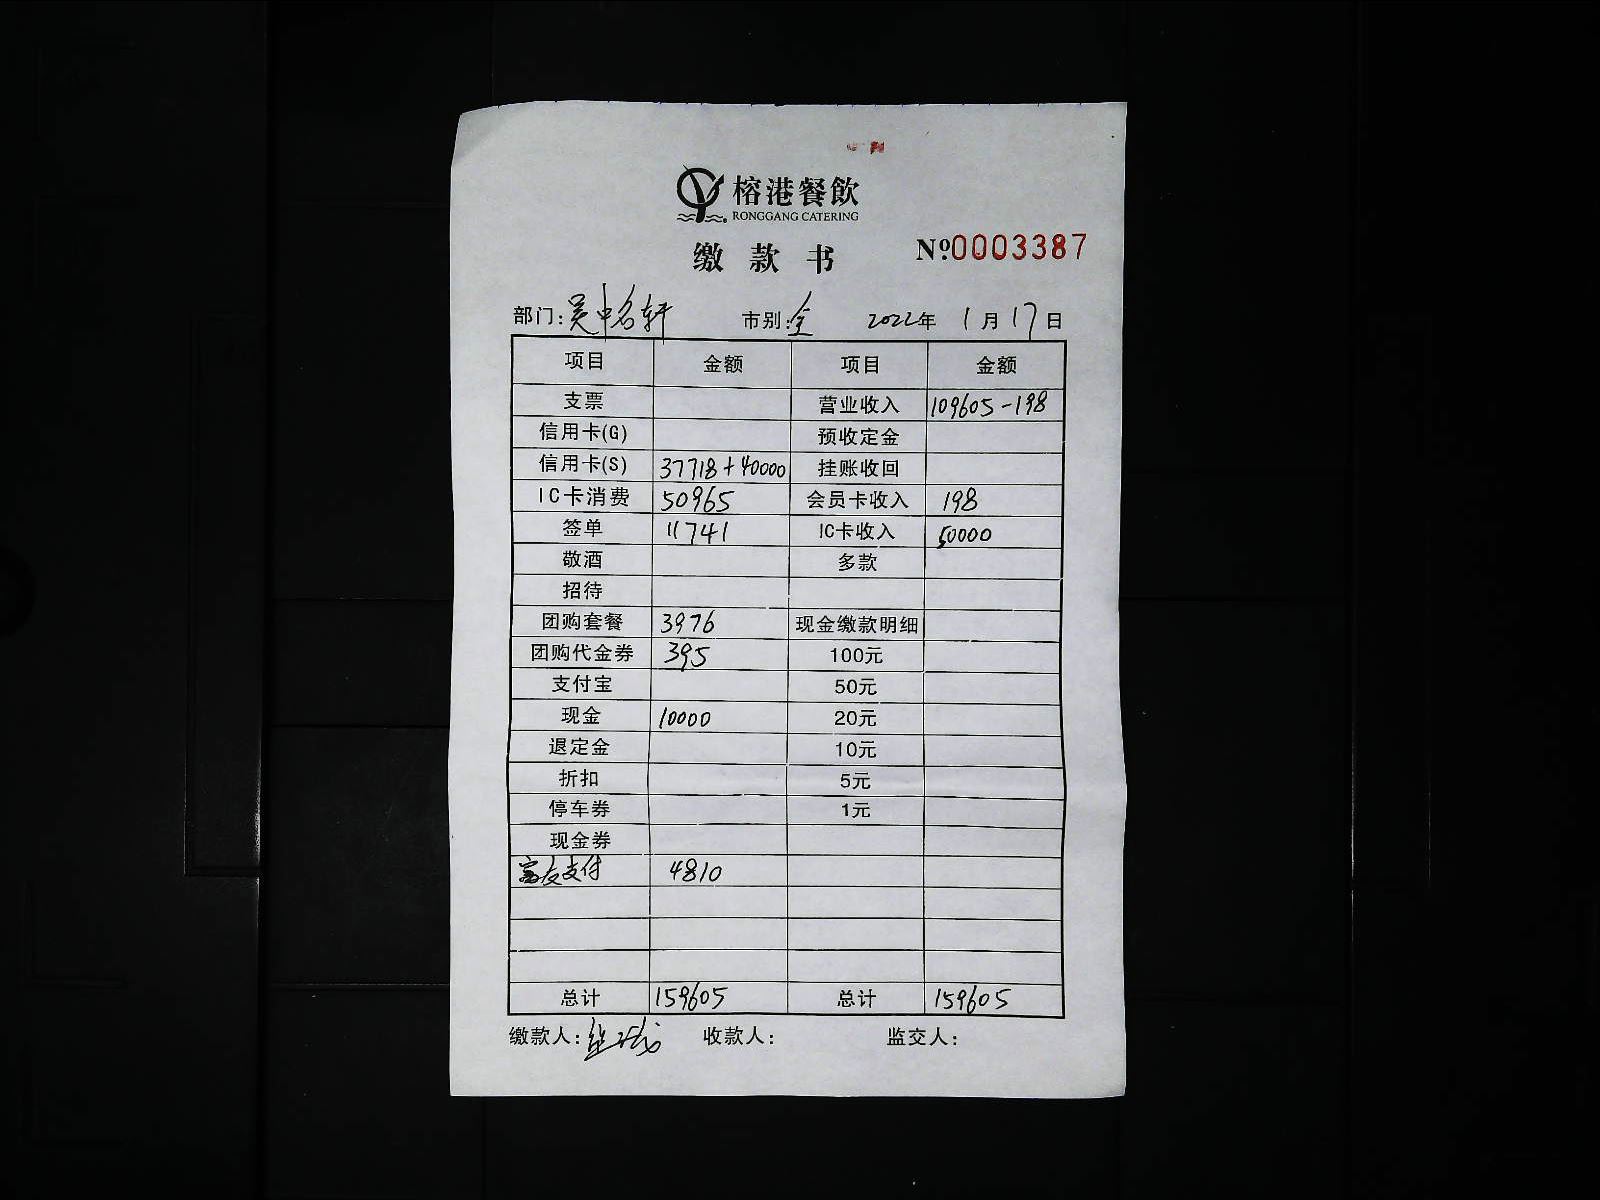 榕港餐飲
RONGGANG CATERING
缴款书 №0003387
部门:吴中名轩 市别:全 2022年1月17日
项目 金额 项目 金额
支票 营业收入 109605-198
信用卡(G) 预收定金
信用卡(S) 37718+40000 挂账收回
IC卡消费 50965 会员卡收入 198
签单 11741 IC卡收入 50000
敬酒 多款
招待
团购套餐 3976 现金缴款明细
团购代金券 395 100元
支付宝 50元
现金 10000 20元
退定金 10元
折扣 5元
停车券 1元
现金券
富友支付 4810
总计 159605 总计 159605
缴款人: 收款人: 监交人: